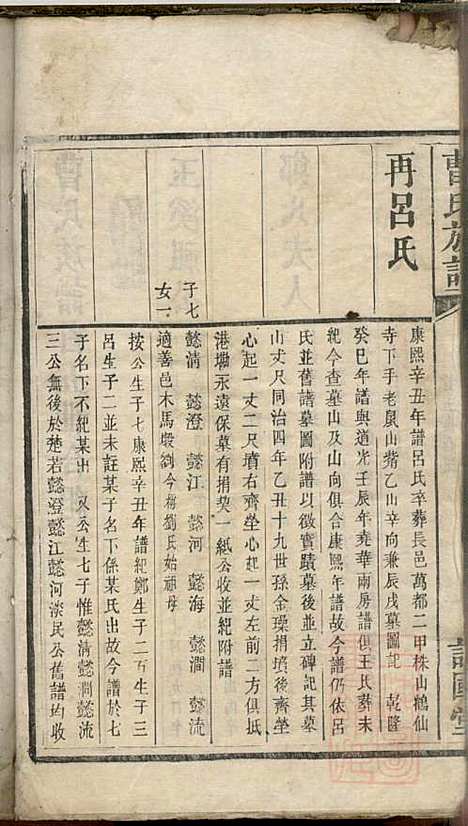 曹氏族譜
再呂氏
康熙辛丑年譜呂氏卒葬長邑萬都二甲株山鶴仙
寺下手老鼠山嘴乙山辛向兼辰戌墓圖記 乾隆
癸巳年譜與道光壬辰年堯華兩房譜俱王氏葬未
紀今查墓山及山向俱合康熙年譜故今譜仍依呂
氏並舊譜墓圖附譜以徵實蹟墓後並立碑記其墓
山丈尺同治四年乙丑十九世孫金璪捐墳後齊塋
心起一丈二尺墳右齊塋心起一丈左前二方俱抵
港墈永遠保墓有捐契一紙公收並紀附譜
子七 懿清 懿澄 懿江 懿河 懿海 懿澗 懿流
女一 適善邑木馬塅劉今梅劉氏始祖母
按公生子七康熙辛丑年譜紀鄭生子二再生子三
呂生子二並未註某子名下係某氏出故今譜於七
子名下不紀某出 又公生七子惟懿清懿澗懿流
三公無後於楚若懿澄懿江懿河淡民公舊譜均收